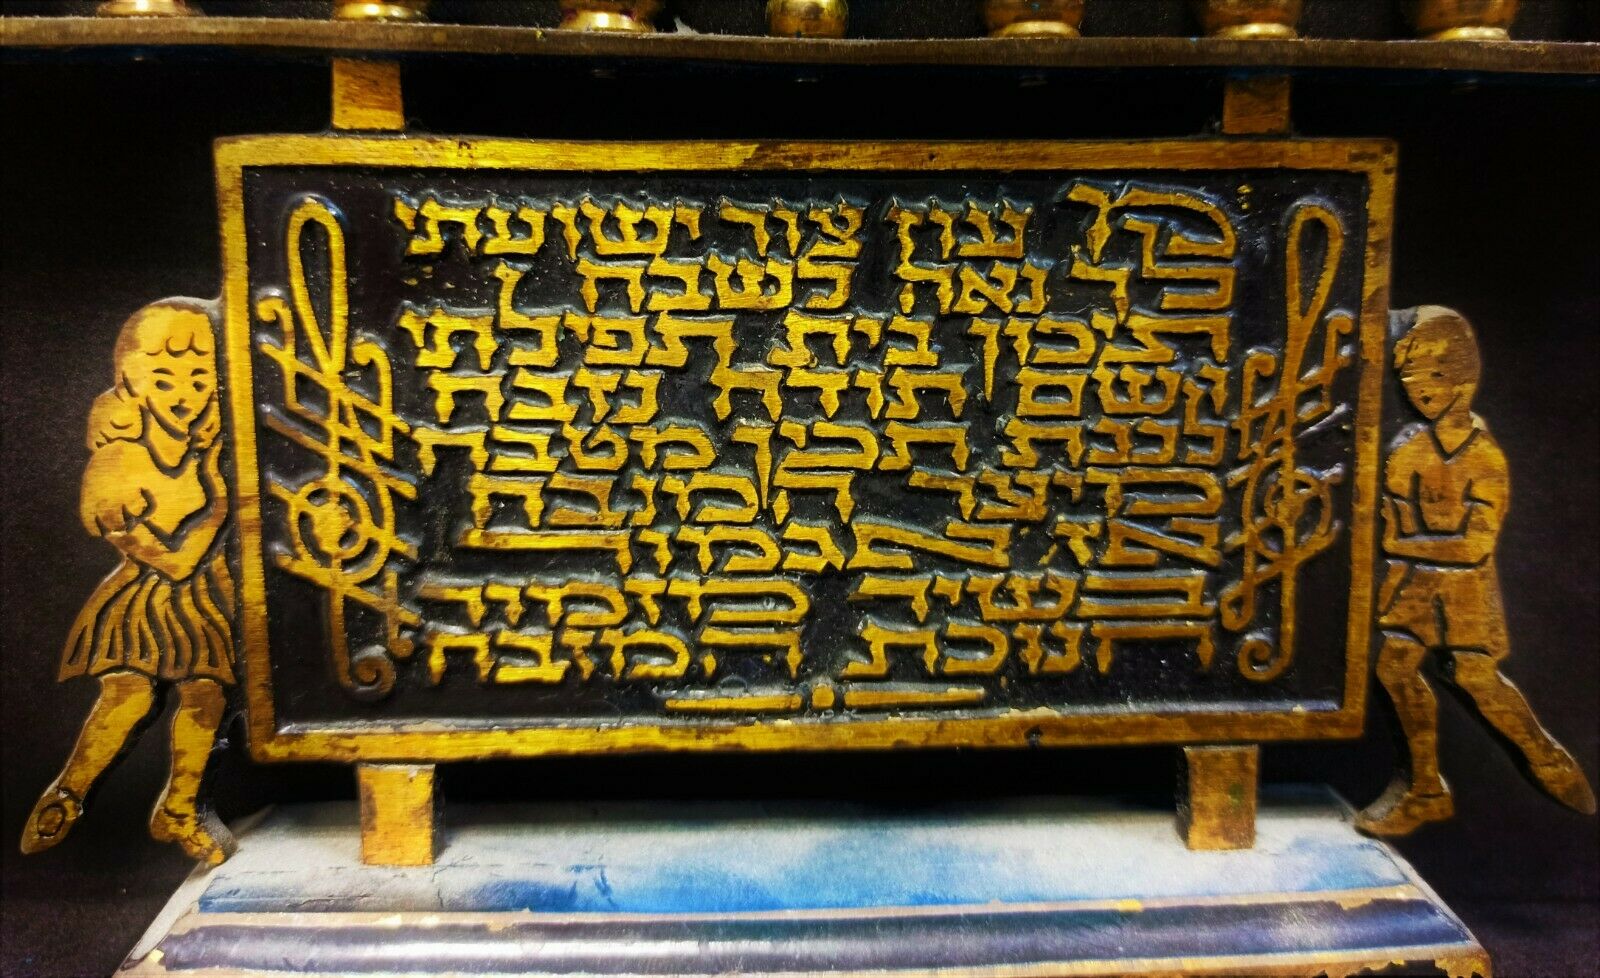 מעוז צור ישועתי
לך נאה לשבח
תיכון בית תפילתי
ושם תודה נזבח
לעת תכין מטבח
מצר המנבח
אז אגמור
בשיר מזמור
חנוכת המזבח